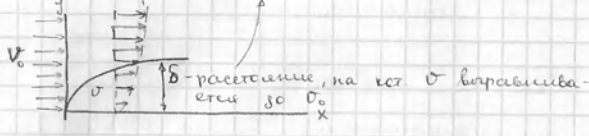 y
V₀
υ
δ - расстояние, на кот. υ выравнива-
ется до υ₀
x